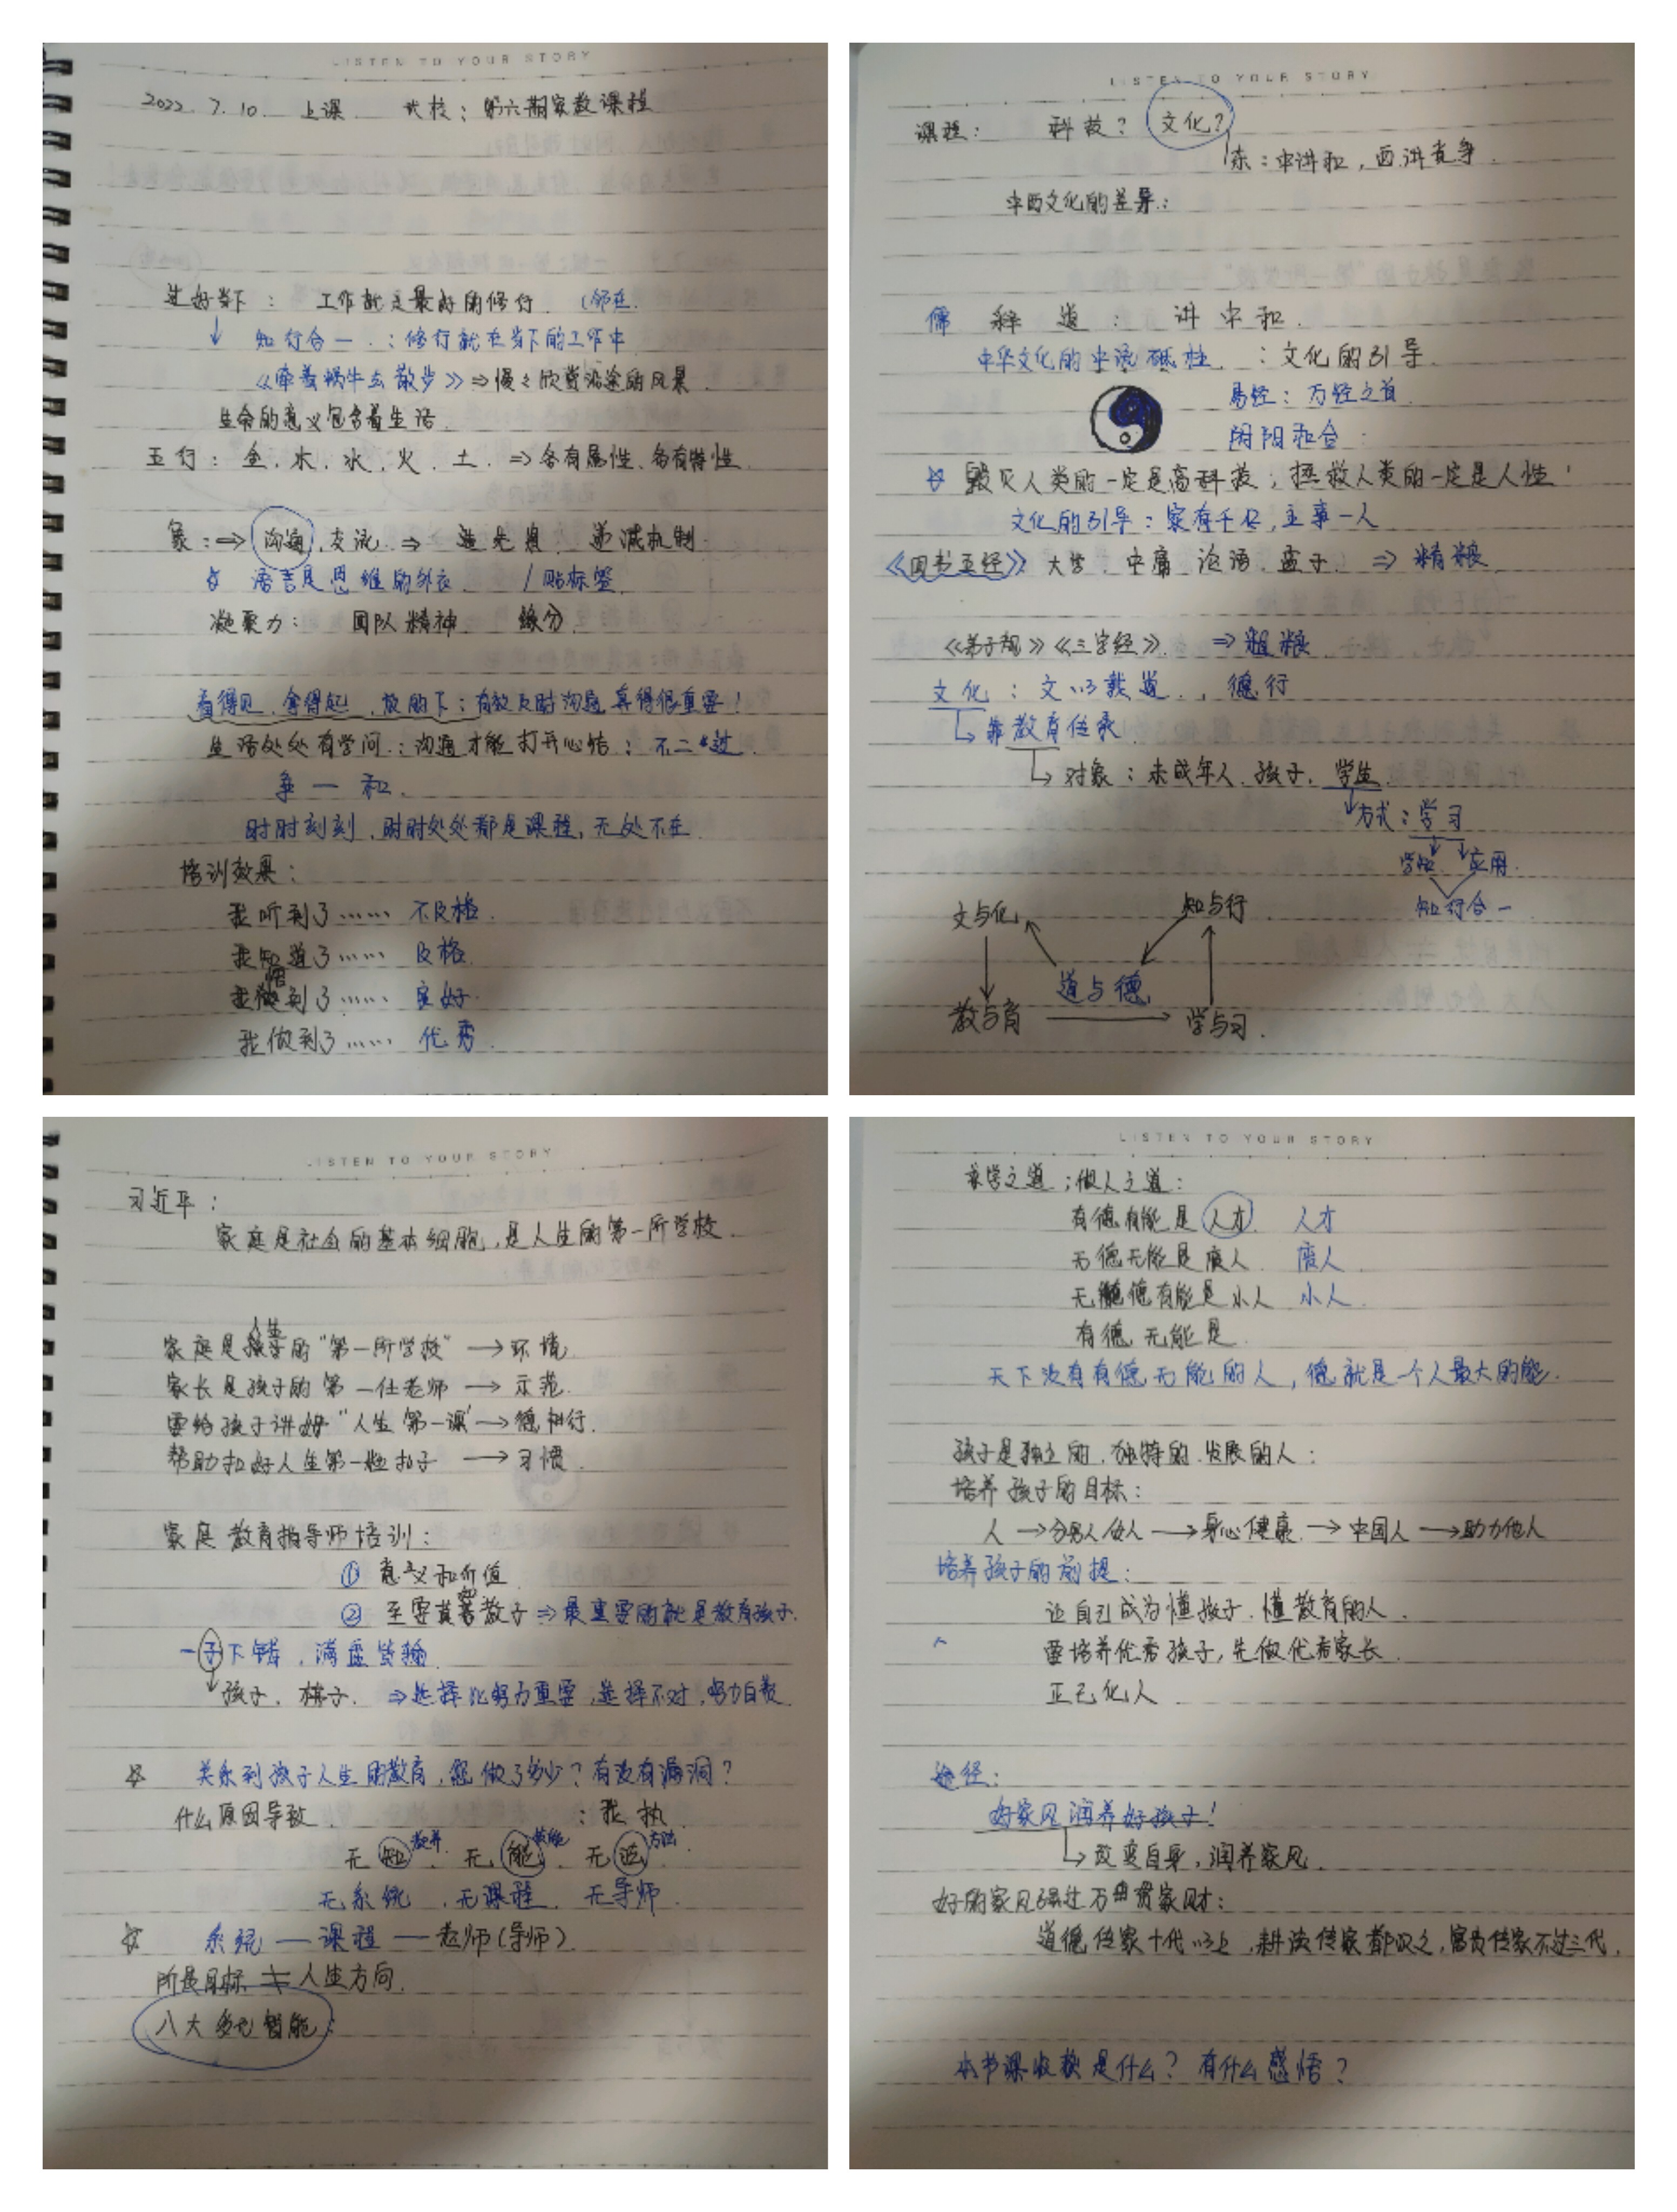 LISTEN TO YOUR STORY
2022.7.10 上课 弋校：第六期家教课程
过好当下： 工作就是最好的修行
↓ 知行合一：修行就在当下的工作中
《牵着蜗牛去散步》⇒慢慢欣赏沿途的风景
生命的意义包含着生活
五行：金、木、水、火、土 ⇒各有属性、各有特性
象：⇒沟通、交流 ⇒ 递减机制
☆ 语言是思维的外衣 / 贴标签
凝聚力： 团队精神 缘分
看得见、拿得起、放的下：有效及时沟通真得很重要！
生活处处有学问：沟通才能打开心结；不二过
争 — 和
时时刻刻，时时处处都是课程，无处不在
培训效果：
我听到了…… 不及格
我知道了…… 及格
我悟到了…… 良好
我做到了…… 优秀
LISTEN TO YOUR STORY
课程： 科技？ 文化？
东：中讲和，西讲竞争
中西文化的差异：
儒 释 道： 讲中和
中华文化的中流砥柱 ：文化的引导
易经：万经之首
阴阳和合
☆ 毁灭人类的一定是高科技；拯救人类的一定是人性！
文化的引导：家有千口，主事一人
《四书五经》大学、中庸、论语、孟子 ⇒ 精粮
《弟子规》《三字经》 ⇒粗粮
文化：文以载道、德行
靠教育传承
对象：未成年人、孩子、学生
方式：学习
学知 应用
知行合一
文与化 知与行
道与德
教与育 → 学与习
LISTEN TO YOUR STORY
习近平：
家庭是社会的基本细胞，是人生的第一所学校
人生
家庭是孩子的“第一所学校”→环境
家长是孩子的第一任老师→示范
要给孩子讲好“人生第一课”→德和行
帮助扣好人生第一粒扣子→习惯
家庭教育指导师培训：
① 意义和价值
② 至要莫如教子⇒最重要的就是教育孩子
一子下错，满盘皆输
孩子、棋子 ⇒选择比努力重要，选择不对，努力白费
☆ 关系到孩子人生的教育，您做了多少？有没有漏洞？
什么原因导致 ：我执
无知 无能 无适方法
无系统、无课程、无导师
☆ 系统—课程—老师(导师)
所是目标≠人生方向
八大多元智能
LISTEN TO YOUR STORY
求学之道；做人之道：
有德有能是人才 人才
无德无能是废人 废人
无德有能是小人 小人
有德无能是
天下没有有德无能的人，德就是一个人最大的能
孩子是独立的、独特的、发展的人：
培养孩子的目标：
人→分男人/女人→身心健康→中国人→助力他人
培养孩子的前提：
让自己成为懂孩子、懂教育的人
要培养优秀孩子，先做优秀家长
正己化人
途径：
好家风润养好孩子！
改变自身，润养家风
好的家风强过万贯家财：
道德传家十代以上，耕读传家都次之，富贵传家不过三代
本节课收获是什么？有什么感悟？